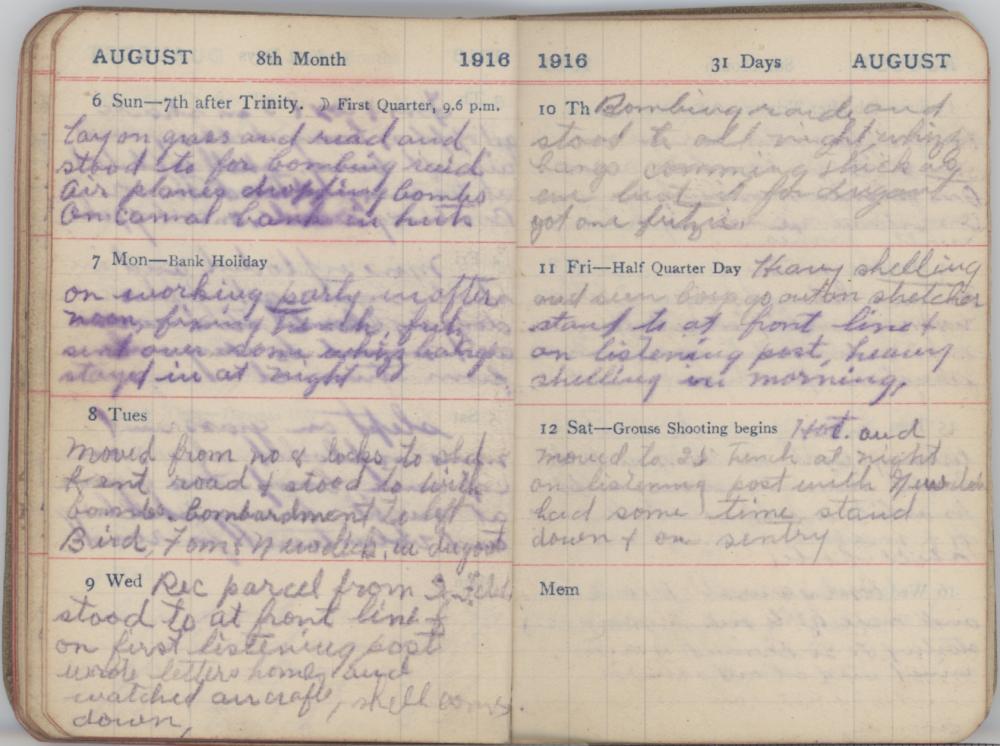 AUGUST 8th Month 1916
6 Sun—7th after Trinity. ☽ First Quarter, 9.6 p.m.
Lay on grass and read and
stood to for bombing raid
Air planes dropping bombs
On canal bank in huts
7 Mon—Bank Holiday
on working party in after
noon, fixing trench, fritz
sent over some whizz bangs
stayed in at night
8 Tues
Moved from no 8 locks to
road & stood to with
bombs. bombardment to left
Bird, Toms, Newdick, in dugout
9 Wed Rec parcel from
stood to at front line &
on first listening post
wrote letters home, and
watched aircraft, shell
down,
1916 31 Days AUGUST
10 Th Bombing raid and
stood to all night, whizz
bangs comming thick
it for dugout
got one
11 Fri—Half Quarter Day Heavy shelling
and seen boys go out on stretcher
stand to at front line &
on listening post, heavy
shelling in morning,
12 Sat—Grouse Shooting begins Hot. and
moved to trench at night
on listening post with Newdick
had some time stand
down & on sentry
Mem